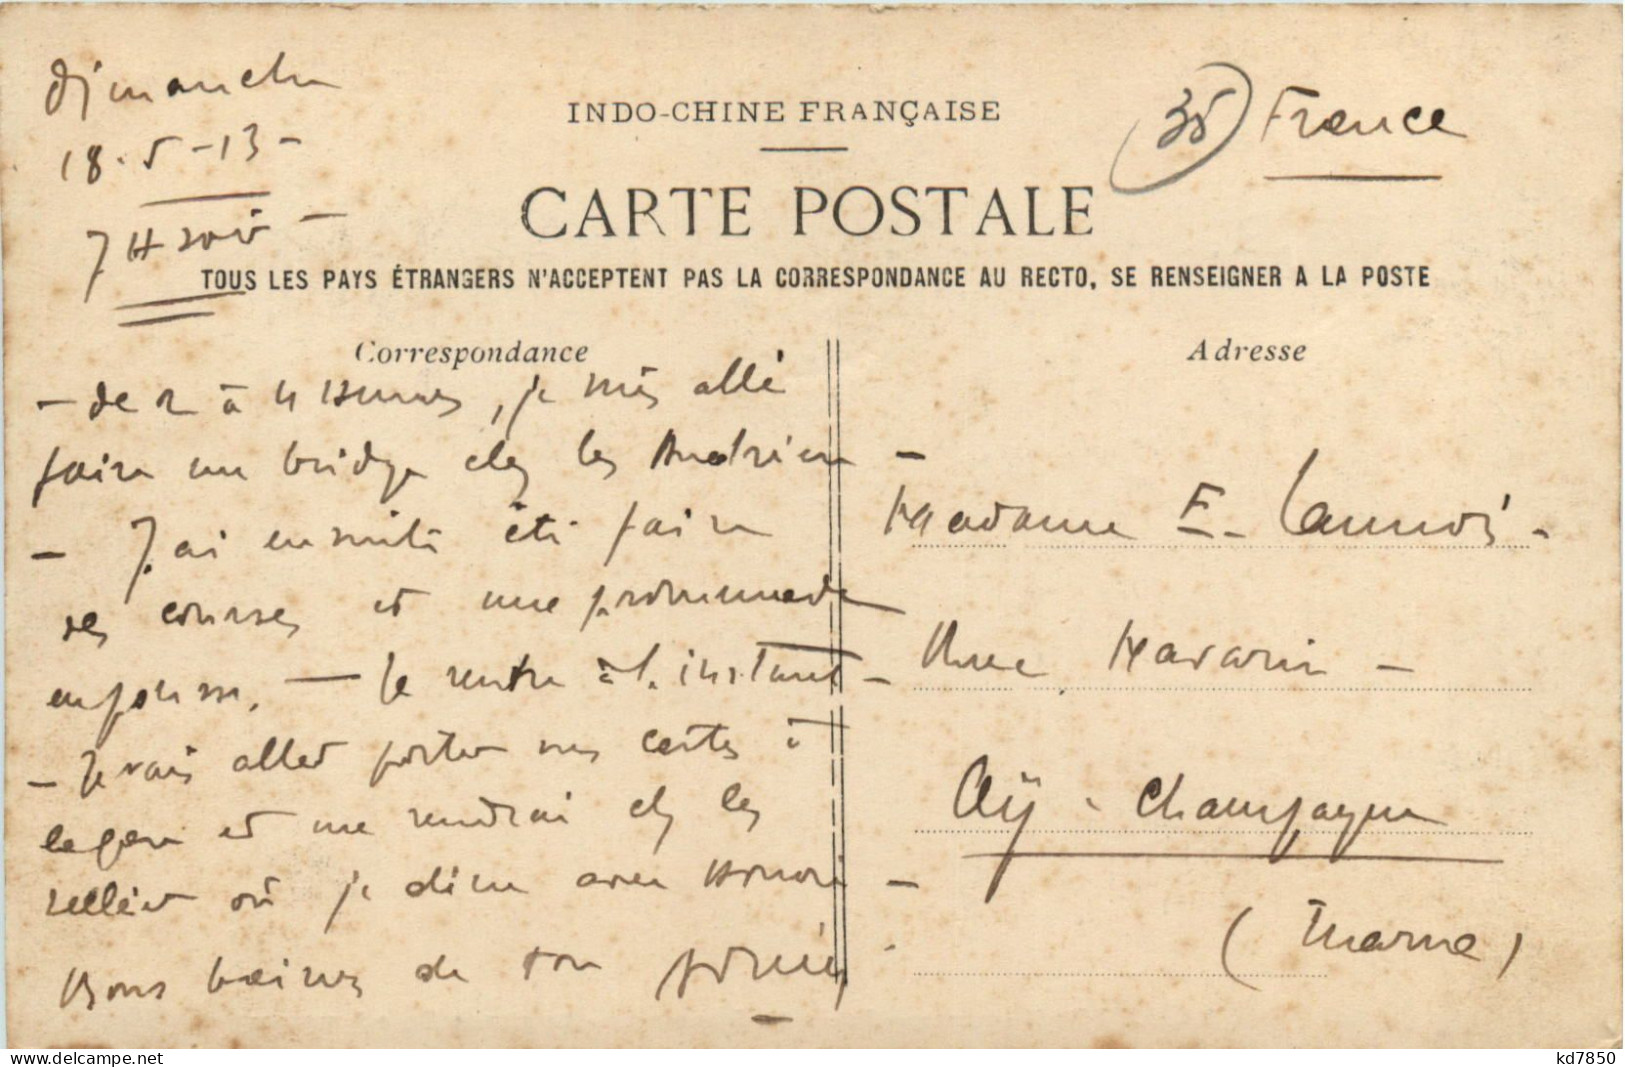 Dimanche
18-5-13-
7 H soir -
INDO-CHINE FRANÇAISE
CARTE POSTALE
35
France
TOUS LES PAYS ÉTRANGERS N'ACCEPTENT PAS LA CORRESPONDANCE AU RECTO, SE RENSEIGNER A LA POSTE
Correspondance
- de 2 à 4 Heures, je suis allé
faire un bridge chez les Andrieu -
- J'ai ensuite été faire
des courses et une promenade
en pousse. - Je rentre à l'instant -
- Je vais aller porter mes cartes à
et me rendrai chez les
où je dîne avec -
Bons baisers de ton
Adresse
Madame E. Lannois -
Rue Navarin -
Aÿ - Champagne
(Marne)
delcampe.net
kd7850